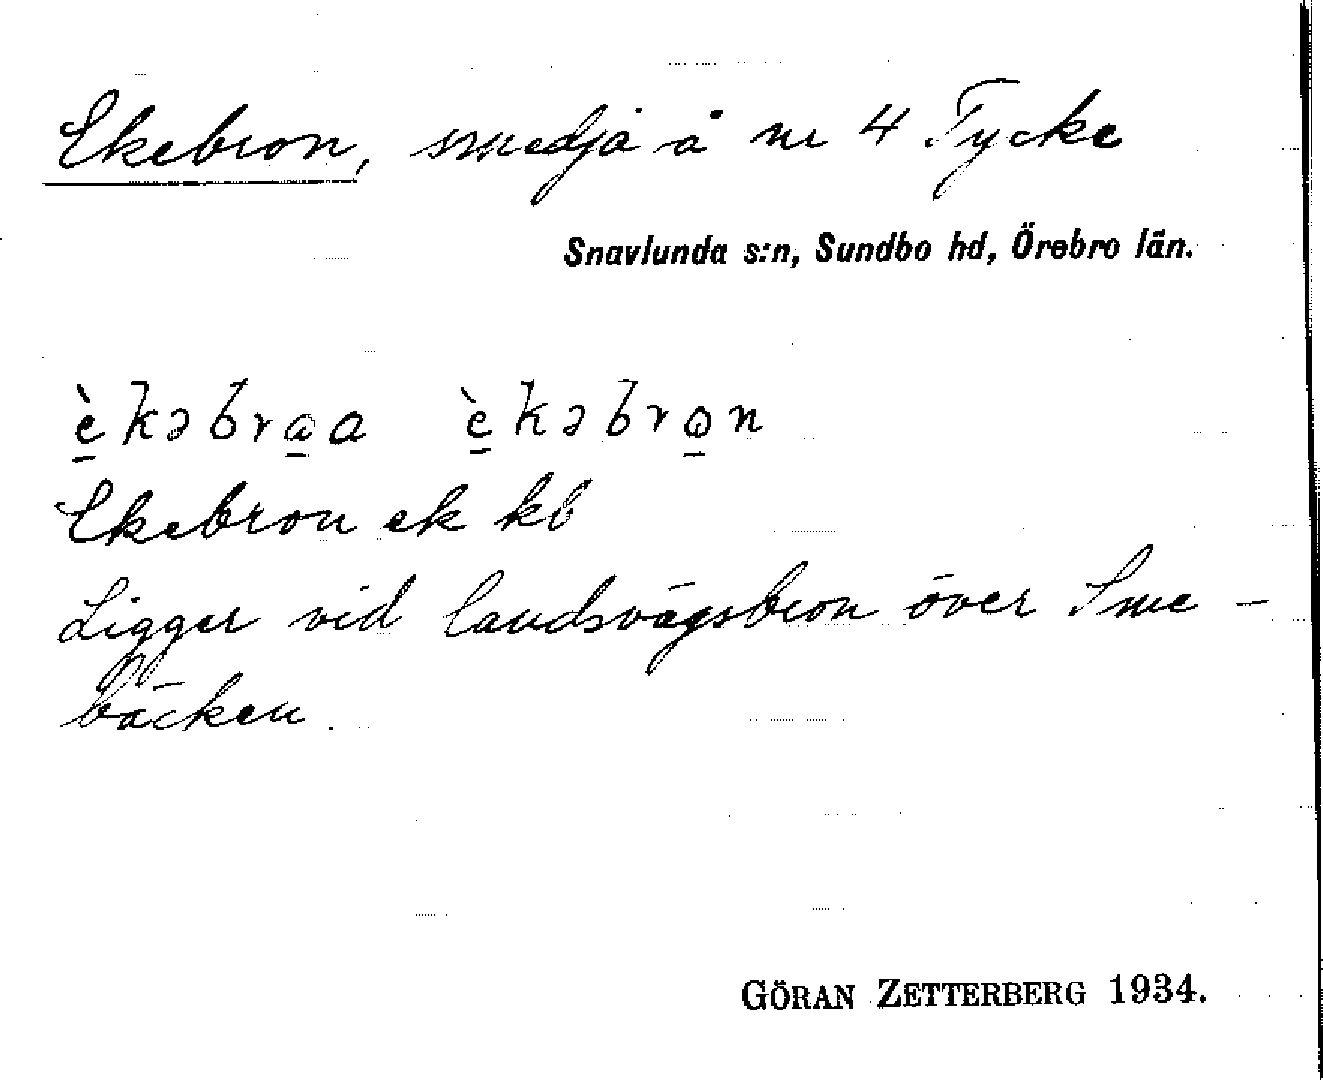 Ekebron, smedja å nr 4 Tycke
Snavlunda s:n, Sundbo hd, Örebro län.
è̱kəbra̱a è̱kəbro̱n
Ekebron ek kb
Ligger vid landsvägsbron över Sme-
bäcken.
GÖRAN ZETTERBERG 1934.